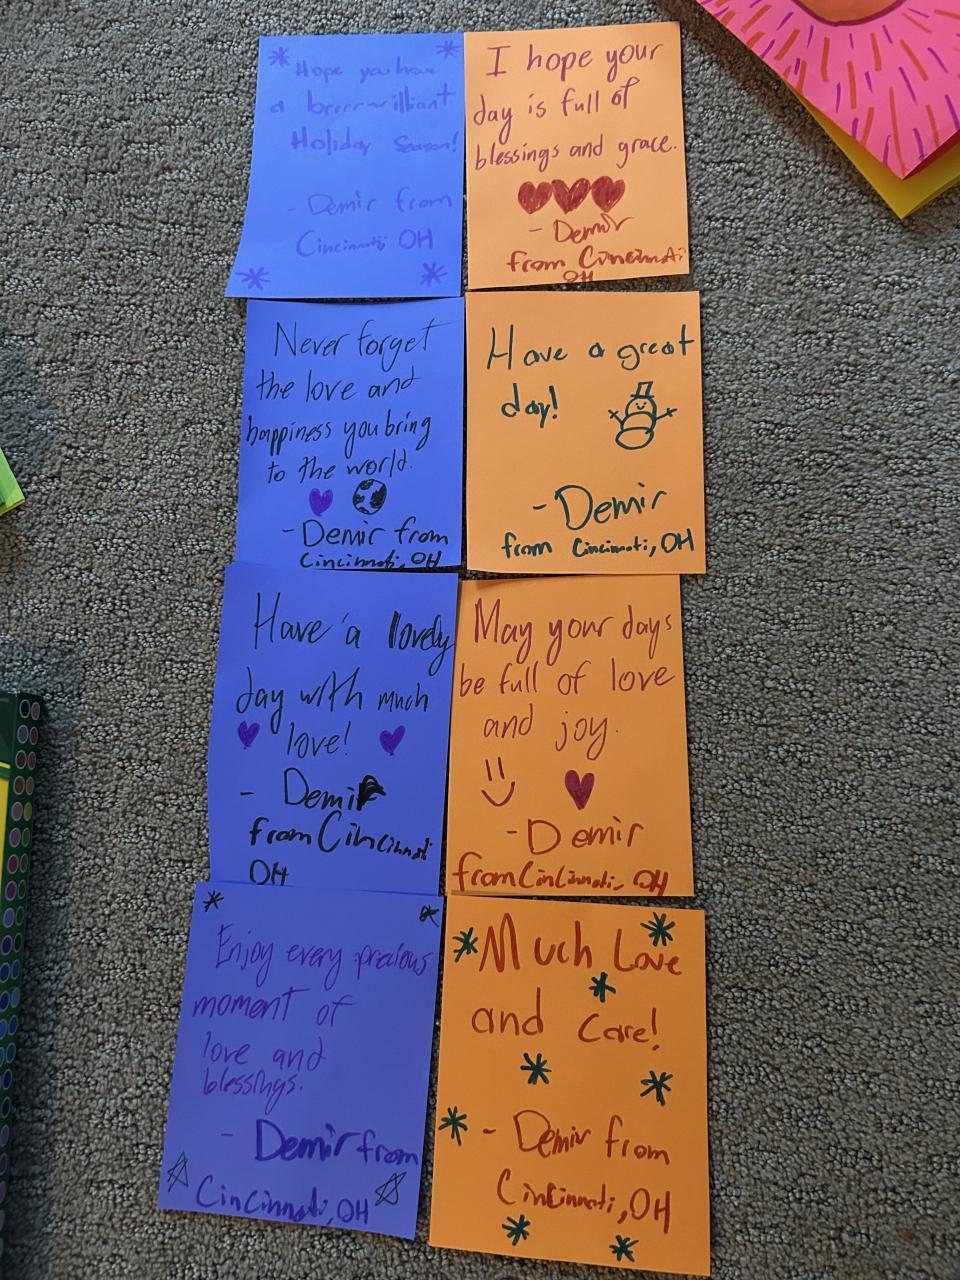 Hope you have
a brrrr~illiant
Holiday Season!
- Demir from
Cincinnati OH
I hope your
day is full of
blessings and grace.
- Demir
from Cincinnati
OH
Never forget
the love and
happiness you bring
to the world.
- Demir from
Cincinnati, OH
Have a great
day!
- Demir
from Cincinnati, OH
Have a lovely
day with much
love!
- Demir
from Cincinnati
OH
May your days
be full of love
and joy.
- Demir
from Cincinnati, OH
Enjoy every precious
moment of
love and
blessings.
- Demir from
Cincinnati, OH
Much Love
and Care!
- Demir from
Cincinnati, OH